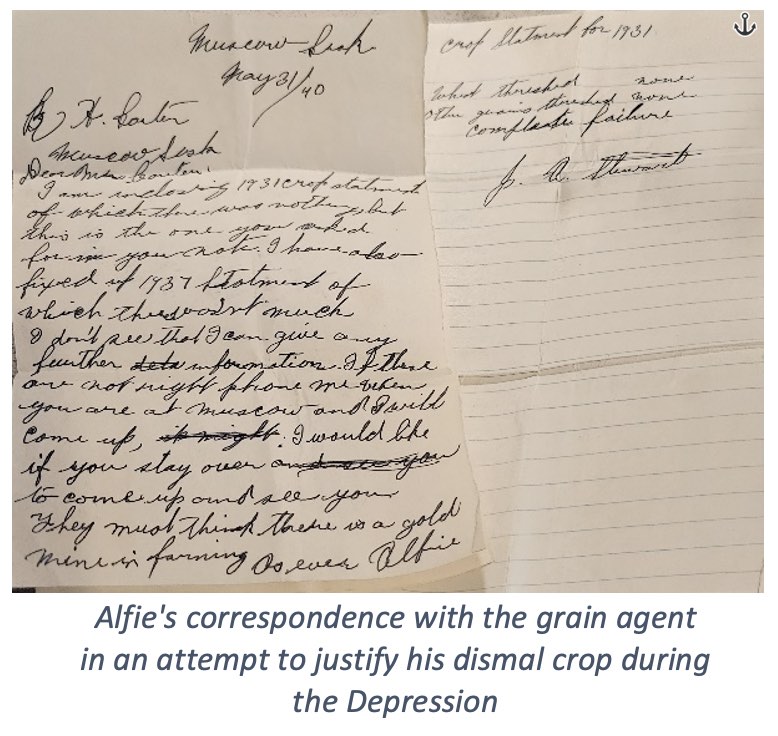 Muscow Sask
May 31/40
H. Carter
Muscow Sask
Dear Mr. Carter:
I am inclosing 1931 crop statment
of which there was nothing but
this is the one you asked
for in you note. I have also
fixed up 1937 Statment of
which there wasn't much
I don't see that I can give any
further information. If these
are not right phone me when
you are at Muscow and I will
come up, it might. I would like
if you stay over and see you
to come up and see you
They must think there is a gold
mine in farming As ever Alfie
crop Statment for 1931
Wheat threshed none
Other grains threshed none
complete failure
J. A. Stewart
Alfie's correspondence with the grain agent
in an attempt to justify his dismal crop during
the Depression